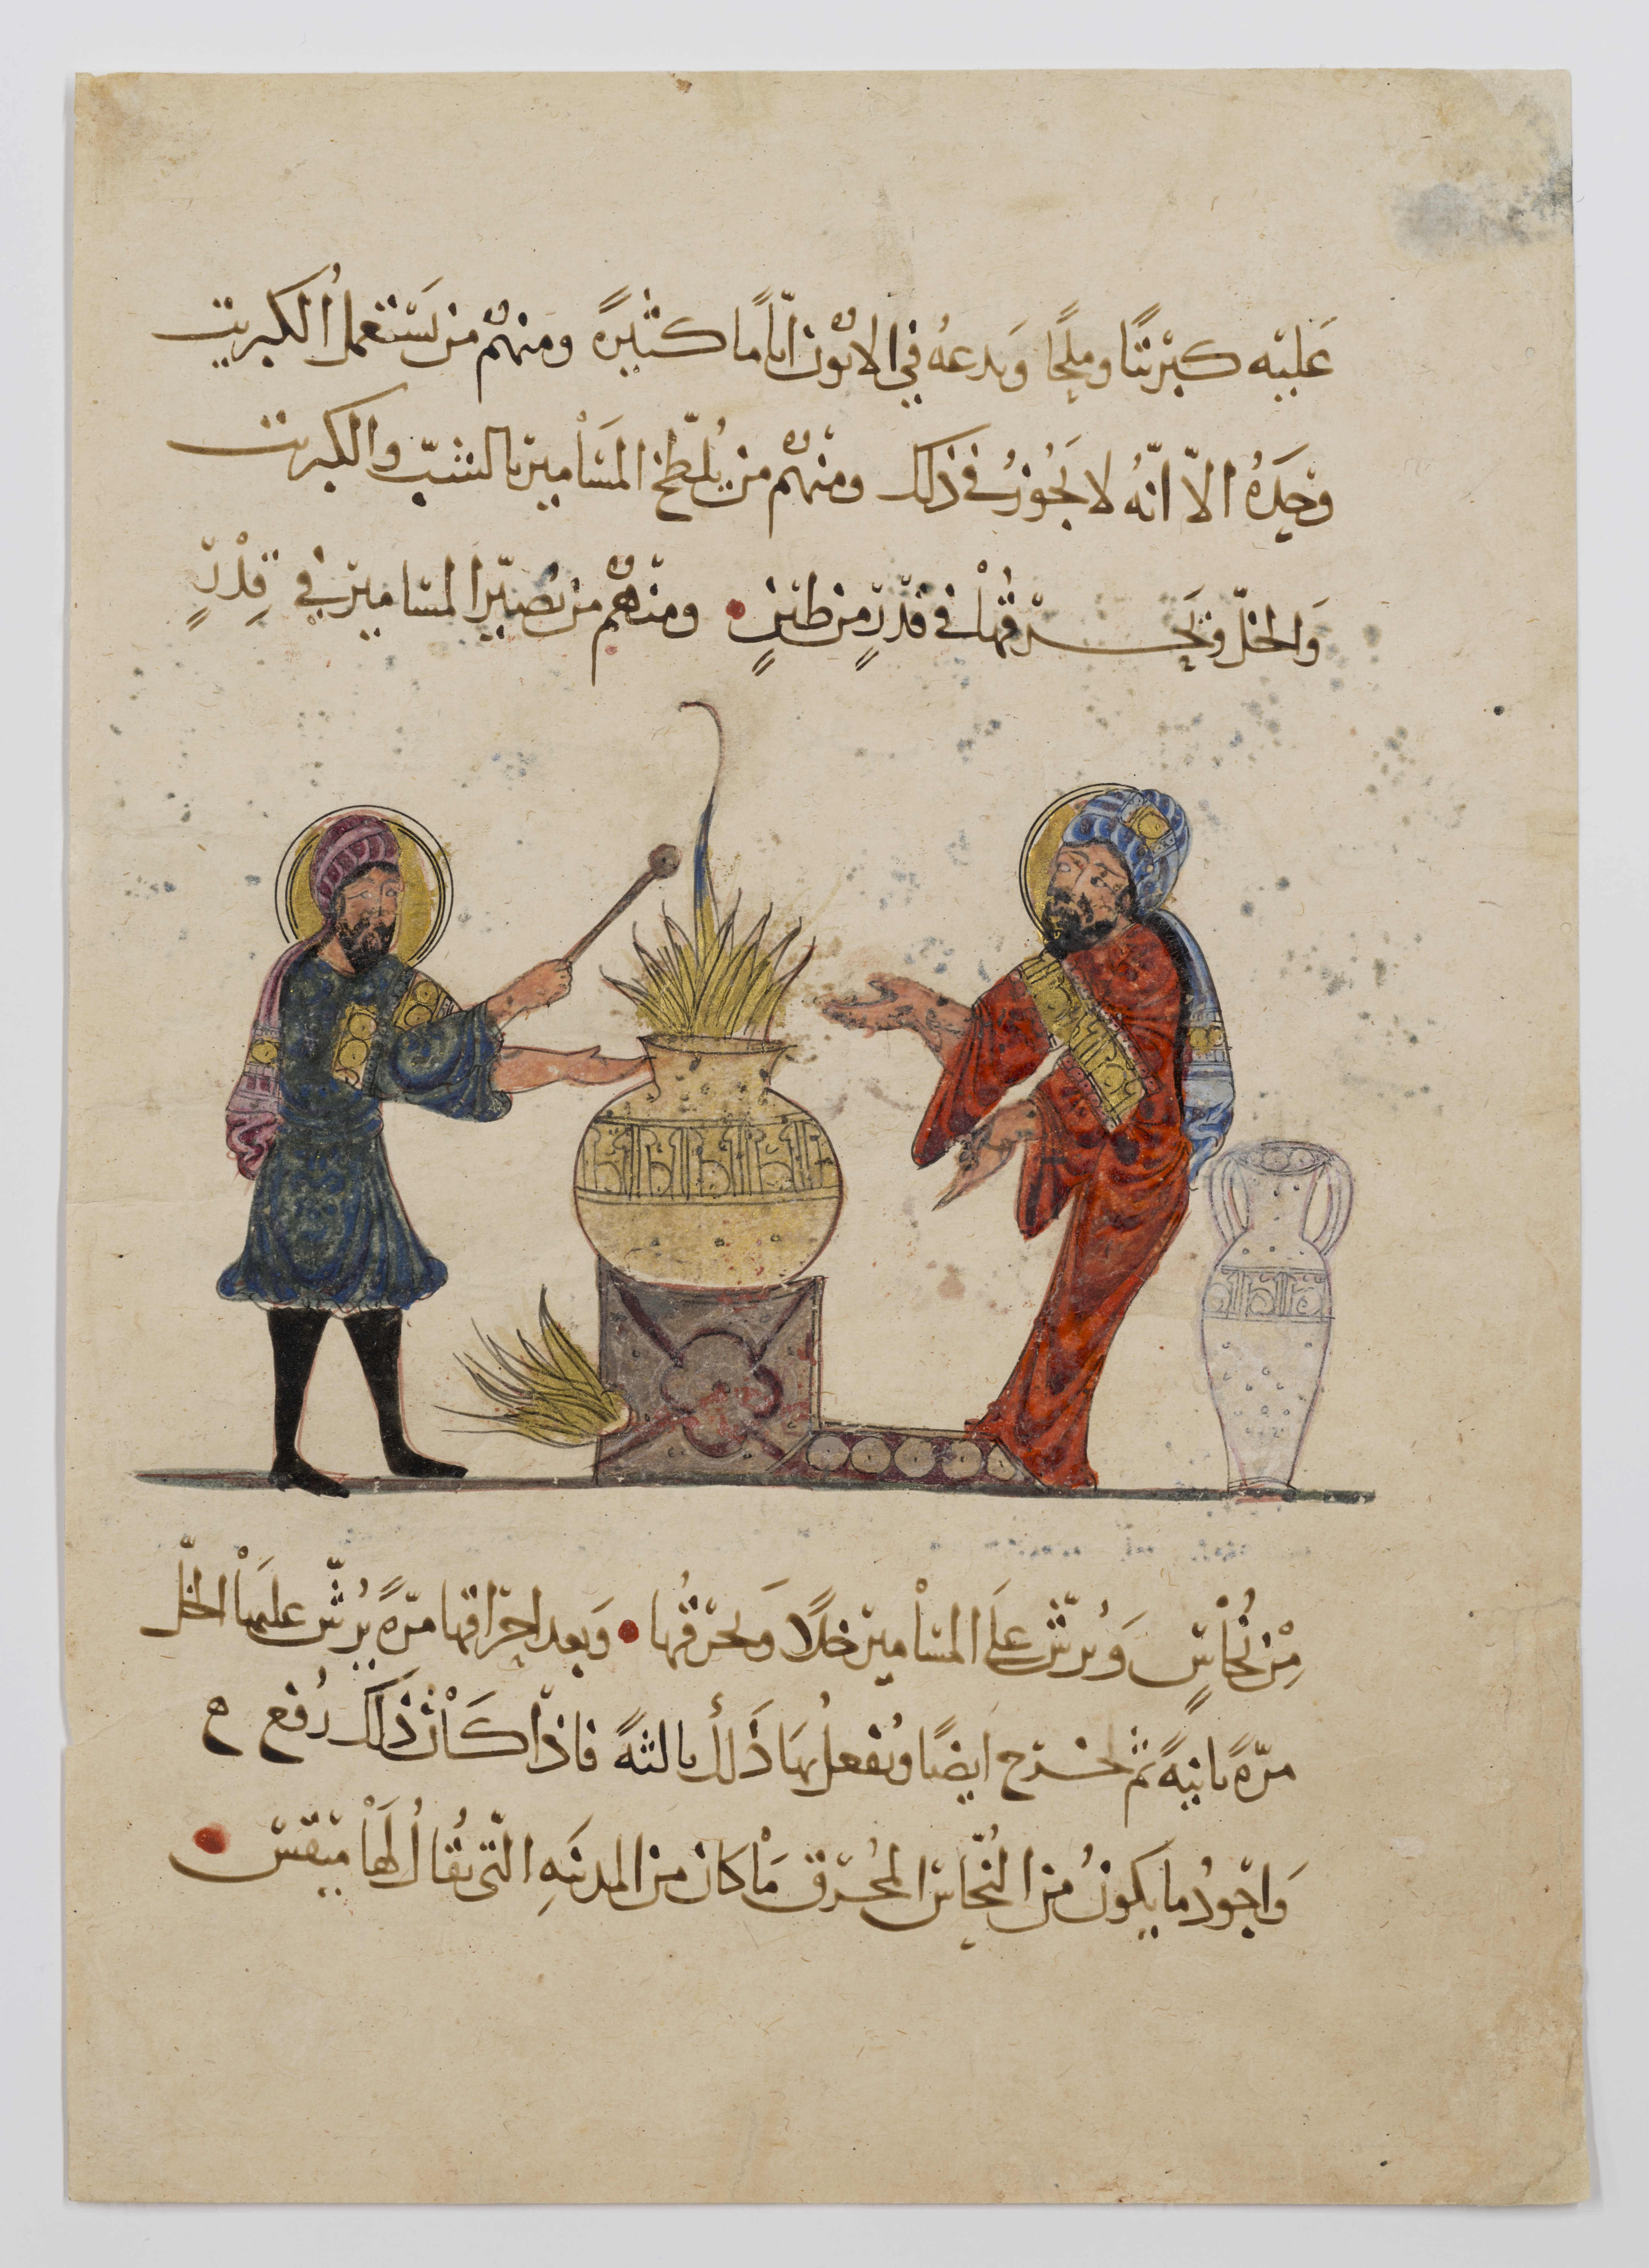 عَليْه كبْريتًا وملحًا وَيدعهُ في الاتون ايّامًا كثيرةً ومنهُم من يَسْتعملُ الكبريت
وحَدهُ الاّ انّهُ لا يَجُوزُ في ذلك ومنهُم من يُلطّخ المسَاْمير بالشبّ والكبريت
وَالخلّ ويَحرقُهاْ في قدْرٍ من طينٍ • ومنهُم من يُصيّر المسامير في قِدْرٍ
مِنْ نُحاْسٍ وَيُرشّ علَى المسْامير خلاً وَيحرقُها • وَبعد احراقها مرّةً يُرشّ عليهَاْ الخلّ
مرّةً ثانيةً ثم تخرج ايضًا ويُفعلُ بهَا ذَلك ثالثةً فاذا كَاْن ذلك رُفع ه
وَاجودُ ما يكونُ من النُحّاس المُحرق مَاْ كان من المدينَهِ الّتي يُقالُ لَهَاْ ميقس •